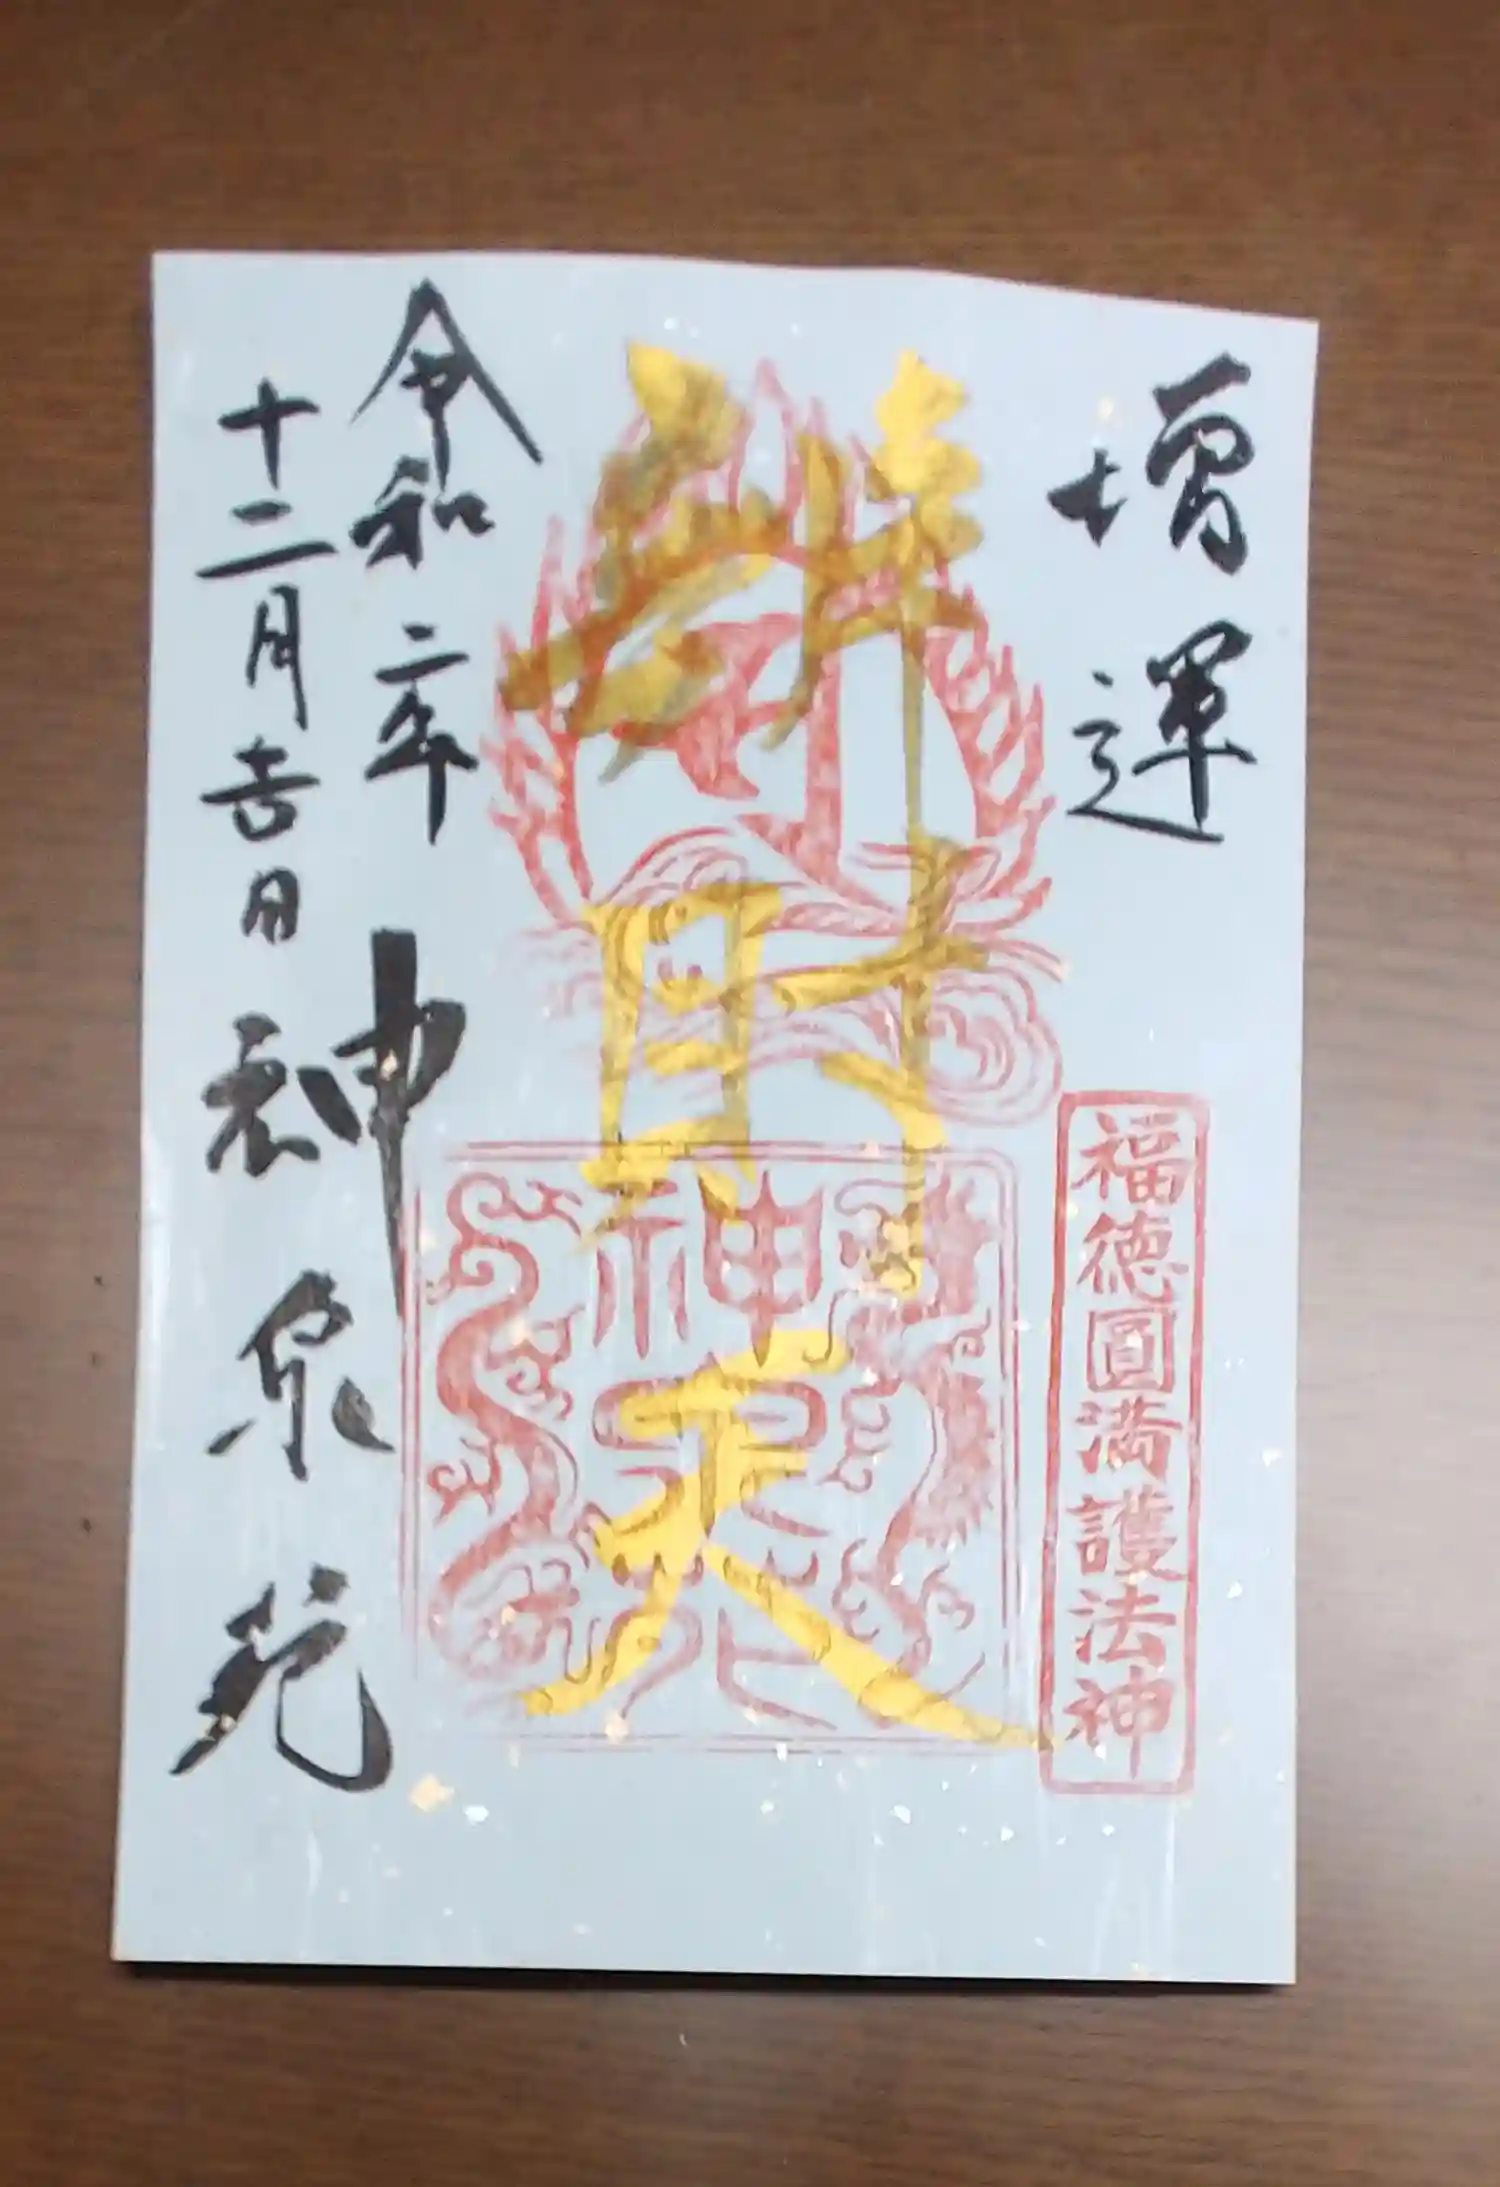 増運
福徳圓満護法神
辨財天
神泉苑
令和二年
十二月吉日
神泉苑